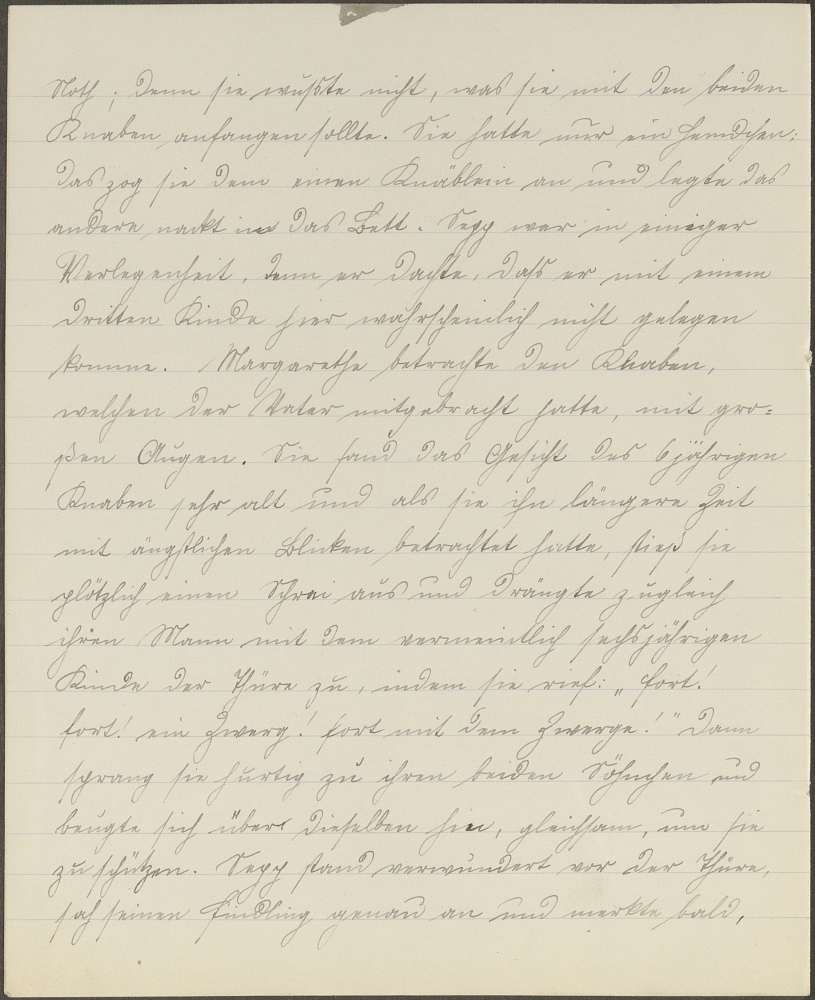 Noth; denn sie wußste nicht, was sie mit den beiden
Knaben anfangen sollte. Sie hatte nur ein Hemdchen;
das zog sie dem einen Knäblein an und legte das
andere nackt in das Bett. Sepp war in einiger
Verlegenheit, denn er dachte, dass er mit einem
dritten Kinde hier wahrscheinlich nicht gelegen
komme. Margarethe betrachte den Knaben,
welchen der Vater mitgebracht hatte, mit gro=
ßen Augen. Sie fand das Gesicht des 6jährigen
Knaben sehr alt und als sie ihn längere Zeit
mit ängstlichen Blicken betrachtet hatte, stieß sie
plötzlich einen Schrei aus und drängte zugleich
ihren Mann mit dem vermeintlich sechsjährigen
Kinde der Thüre zu, indem sie rief: „fort!
fort! ein Zwerg! fort mit dem Zwerge!" Dann
sprang sie hurtig zu ihren beiden Söhnchen und
beugte sich über dieselben hin, gleichsam, um sie
zu schützen. Sepp stand verwundert vor der Thüre,
sah seinen Findling genau an und merkte bald,